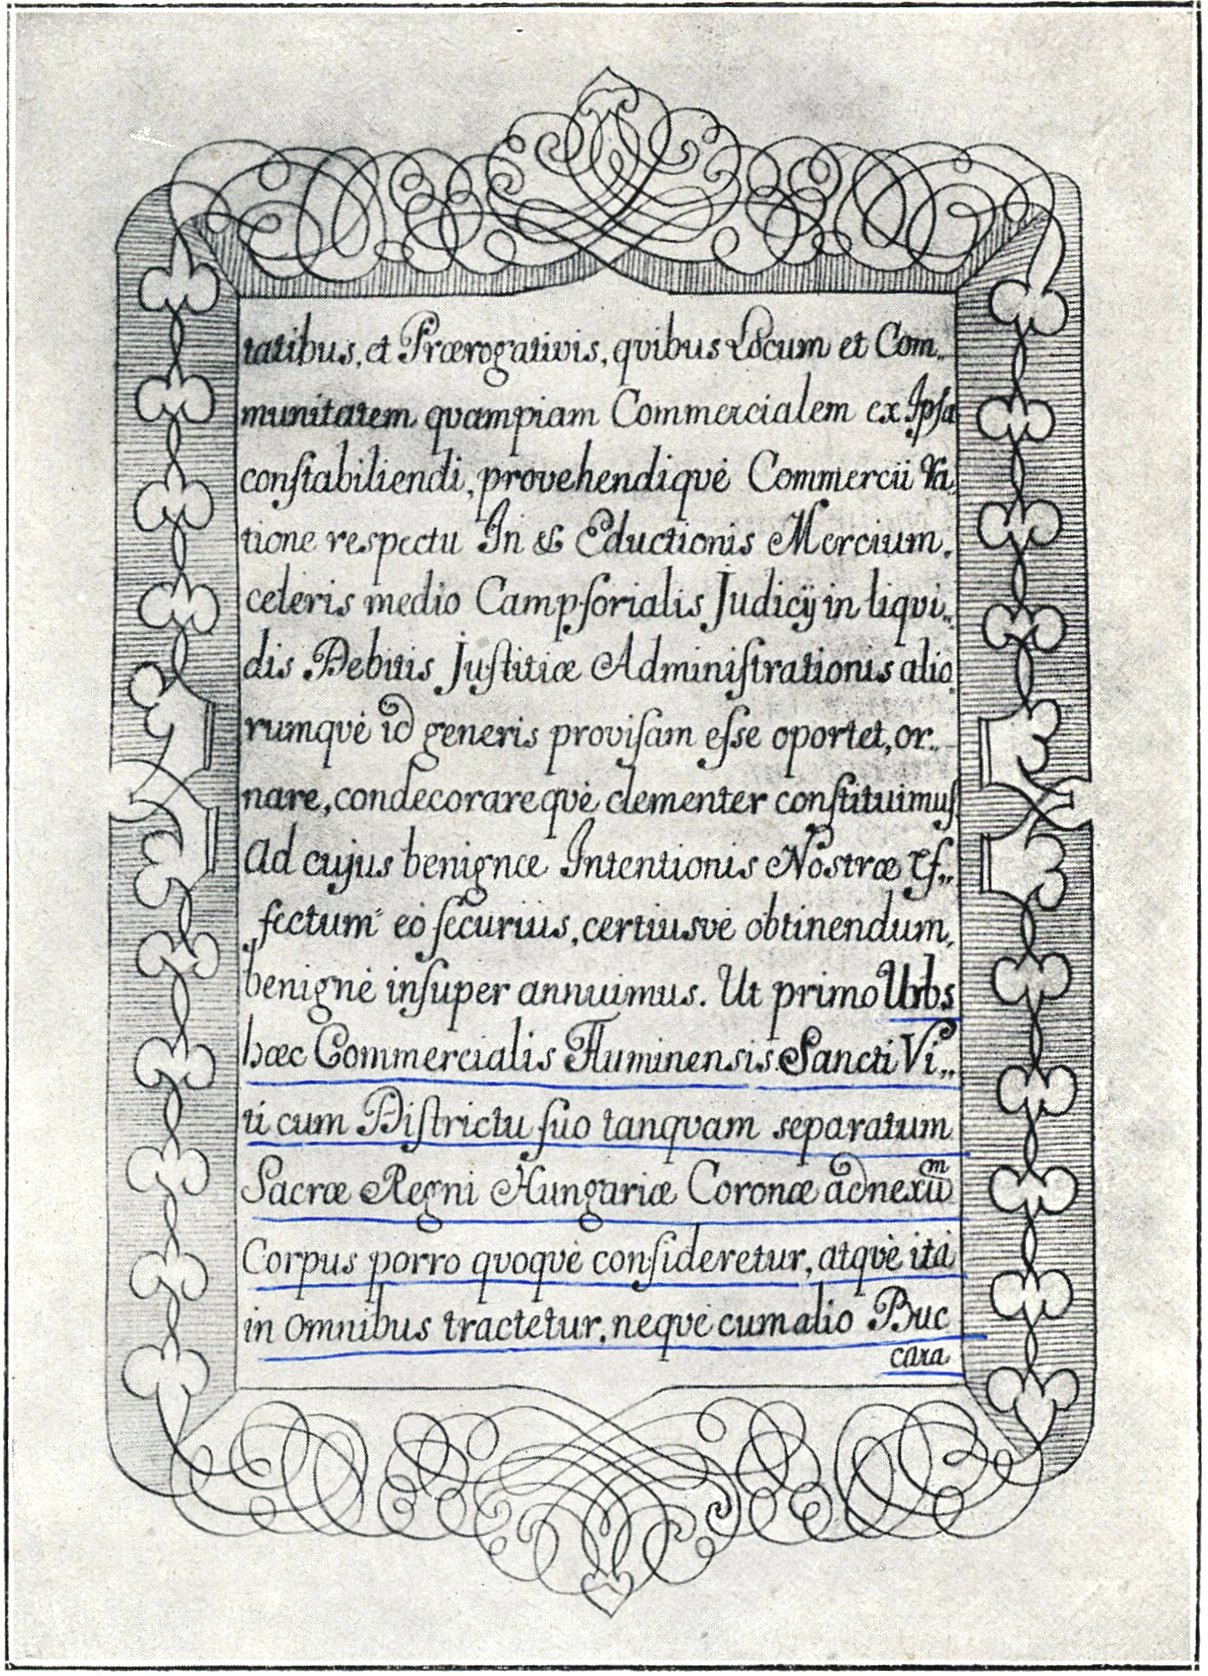 tatibus, et Prærogativis, quibus Locum et Com„
munitatem quampiam Commercialem ex Ipsa
constabiliendi, provehendiquè Commercii ra„
tione respectu In & Eductionis Mercium,
celeris medio Campsorialis Judicÿ in liqui„
dis Debitis Justitiæ Administrationis alio„
rumquè id generis provisam esse oportet, or„
nare, condecorarequè clementer constituimus.
Ad cujus benignæ Intentionis Nostræ Ef„
fectum eò securiùs, certiusvè obtinendum,
benignè insuper annuimus. Ut primo Urbs
hæc Commercialis Fluminensis Sancti Vi„
ti cum Districtu suo tanquam separatum
Sacræ Regni Hungariæ Coronæ adnexū̃m
Corpus porro quoquè consideretur, atquè ità
in omnibus tractetur, nequè cum alio Buc
cara